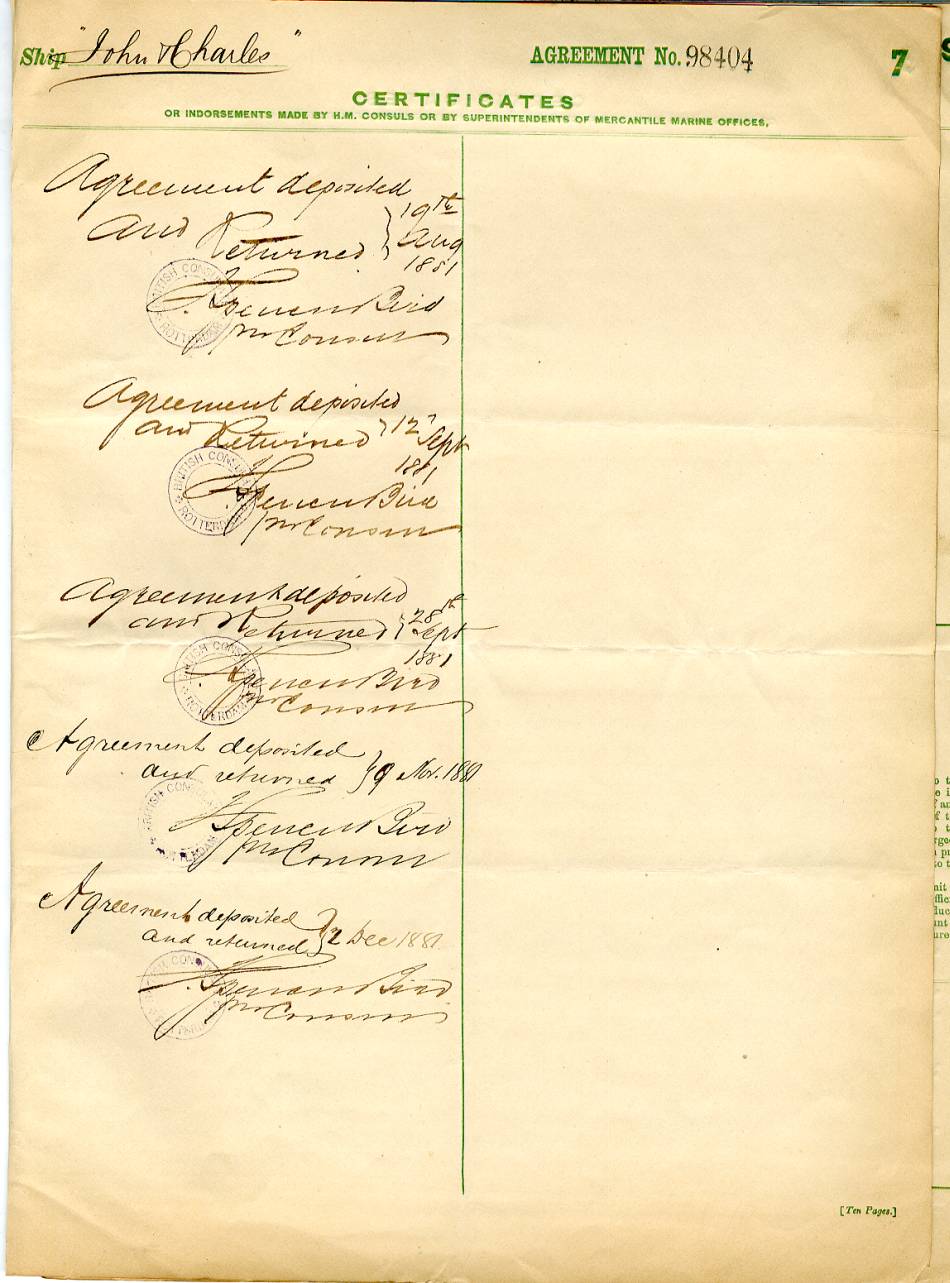 Ship "John & Charles"
AGREEMENT No. 98404
7
CERTIFICATES
OR INDORSEMENTS MADE BY H.M. CONSULS OR BY SUPERINTENDENTS OF MERCANTILE MARINE OFFICES,
Agreement deposited
and Returned } 19th Aug 1881
BRITISH CONSU
ROTTERDAM
Spencer Bird
Consul
Agreement deposited
and Returned } 12 Sept 1881
BRITISH CONSU
ROTTERDAM
Spencer Bird
Consul
Agreement deposited
and Returned } 28th Sept 1881
BRITISH CONSU
ROTTERDAM
Spencer Bird
Consul
Agreement deposited
and returned } 9 Nov. 1881
BRITISH CONSU
ROTTERDAM
Spencer Bird
Consul
Agreement deposited
and returned } 2 Dec 1881
Spencer Bird
Consul
[Ten Pages.]